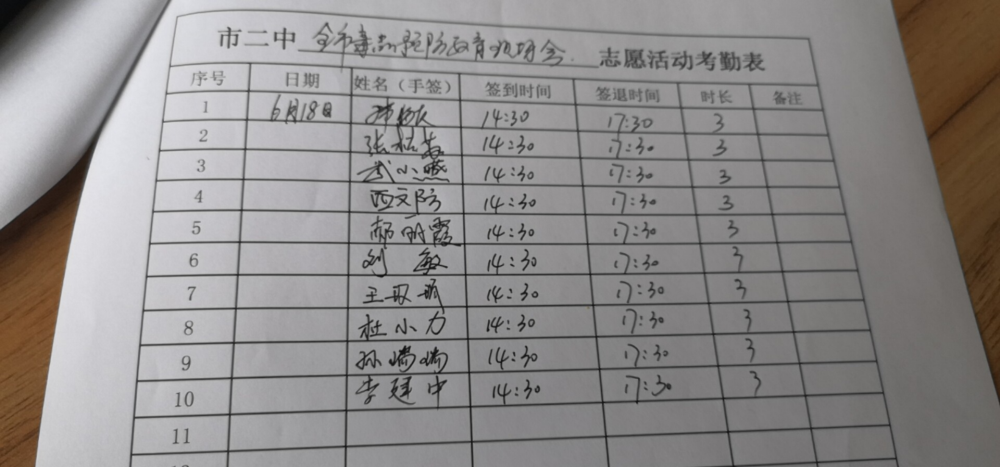 市二中 全市毒品预防教育现场会 志愿活动考勤表
序号 日期 姓名（手签） 签到时间 签退时间 时长 备注
1 6月18日 14:30 17:30 3
2 张 14:30 17:30 3
3 武小 14:30 17:30 3
4 西文防 14:30 17:30 3
5 郝丽霞 14:30 17:30 3
6 刘敏 14:30 17:30 3
7 王 14:30 17:30 3
8 杜小力 14:30 17:30 3
9 孙端端 14:30 17:30 3
10 李建中 14:30 17:30 3
11